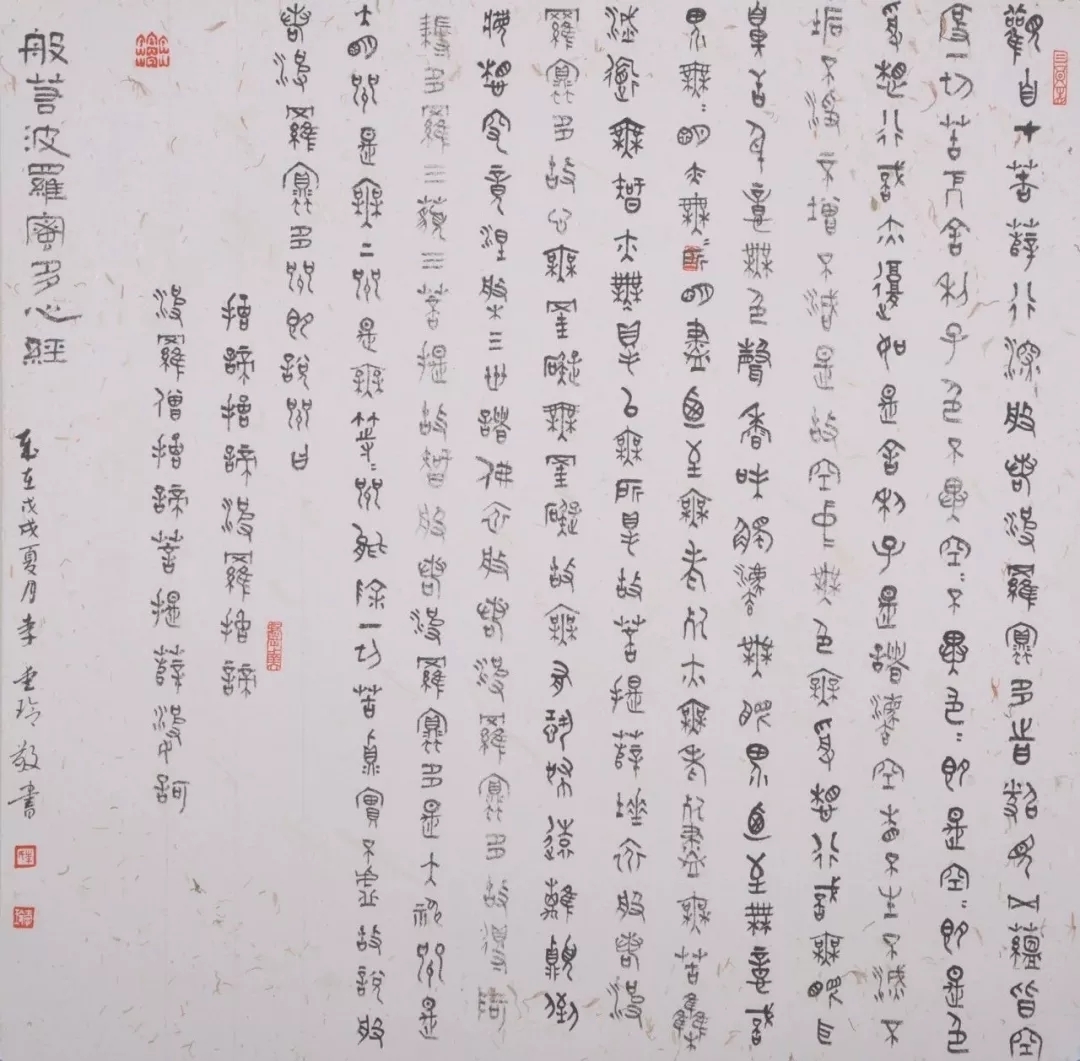 觀自在菩薩行深般若波羅蜜多時照見五蘊皆空
度一切苦厄舍利子色不異空〻不異色〻即是空〻即是色
受想行識亦復如是舍利子是諸法空相不生不滅不
垢不淨不增不減是故空中無色無受想行識無眼耳
鼻舌身意無色聲香味觸法無眼界乃至無意識
界無〻明亦無〻明盡乃至無老死亦無老死盡無苦集
滅道無智亦無得以無所得故菩提薩埵依般若波
羅蜜多故心無罣礙無罣礙故無有恐怖遠離顛倒
夢想究竟涅槃三世諸佛依般若波羅蜜多故得阿
耨多羅三藐三菩提故智般若波羅蜜多是大神咒是
大明咒是無上咒是無等〻咒能除一切苦真實不虛故說般
若波羅蜜多咒即說咒曰
揭諦揭諦波羅揭諦
波羅僧揭諦菩提薩婆訶
般若波羅蜜多心經
歲在戊戌夏月李玲敬書